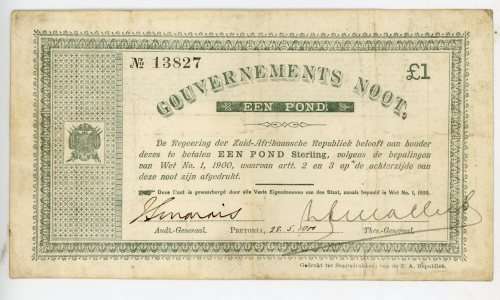 № 13827
£1
GOUVERNEMENTS NOOT,
EEN POND
De Regeering der Zuid-Afrikaansche Republiek belooft aan houder
dezes te betalen EEN POND Sterling, volgens de bepalingen
van Wet No. 1, 1900, waarvan artt. 2 en 3 op de achterzijde van
deze noot zijn afgedrukt.
Deze Noot is gewaarborgd door alle Vaste Eigendommen van den Staat, zooals bepaald in Wet No. 1, 1900.
Audt.-Generaal. PRETORIA, 28.5.1900 Thes.-Generaal.
Gedrukt ter Staatsdrukkerij van de Z. A. Republiek.